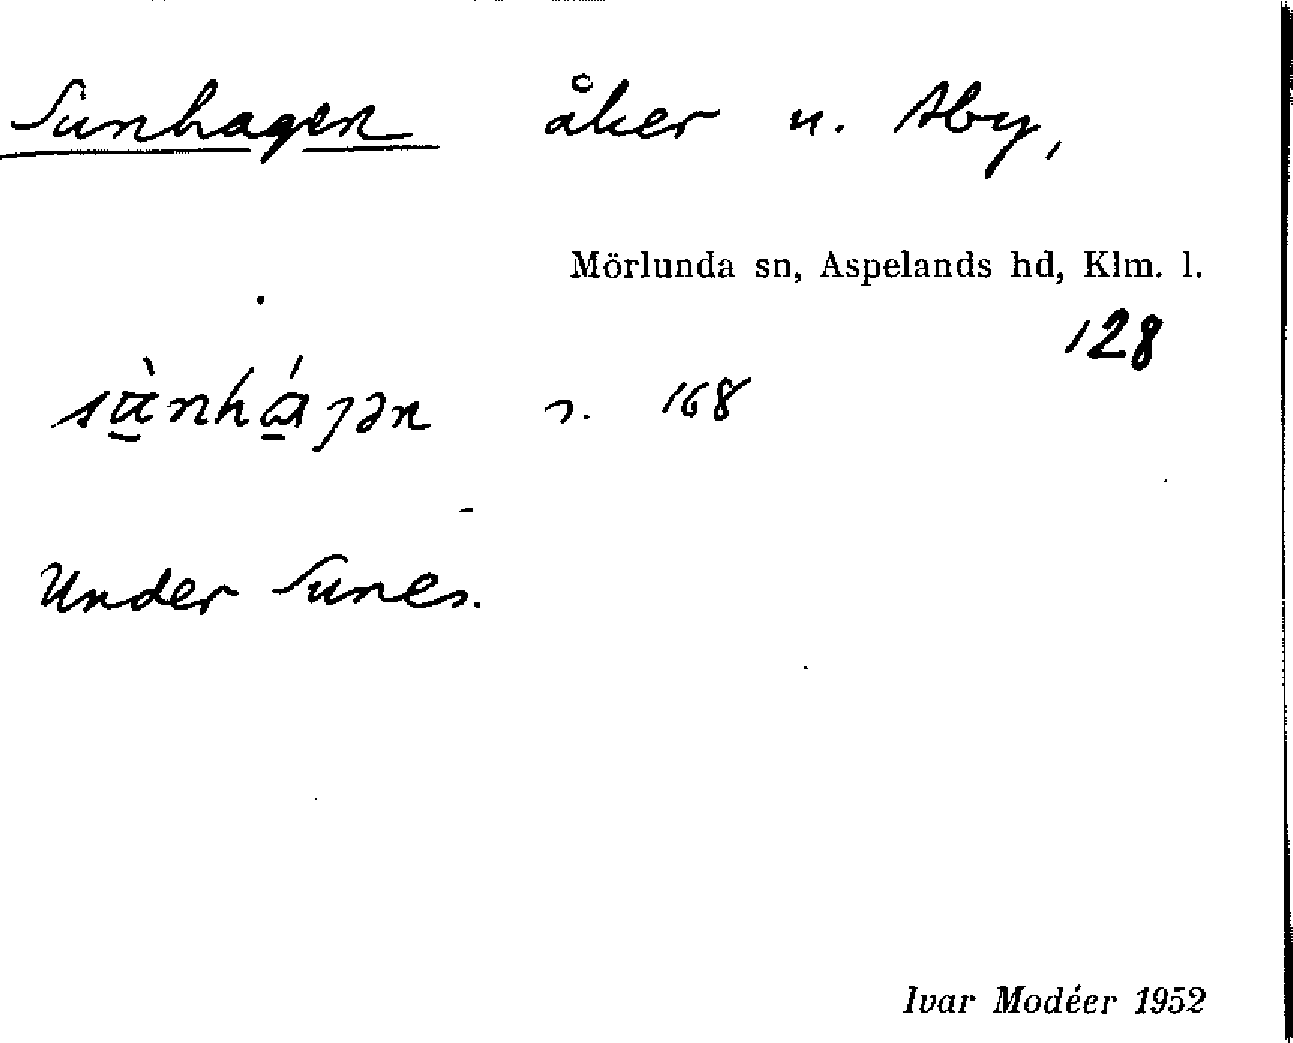 Sunhagen åker u. Åby,
Mörlunda sn, Aspelands hd, Klm. l.
128
s. 168
Under Sunes.
Ivar Modéer 1952